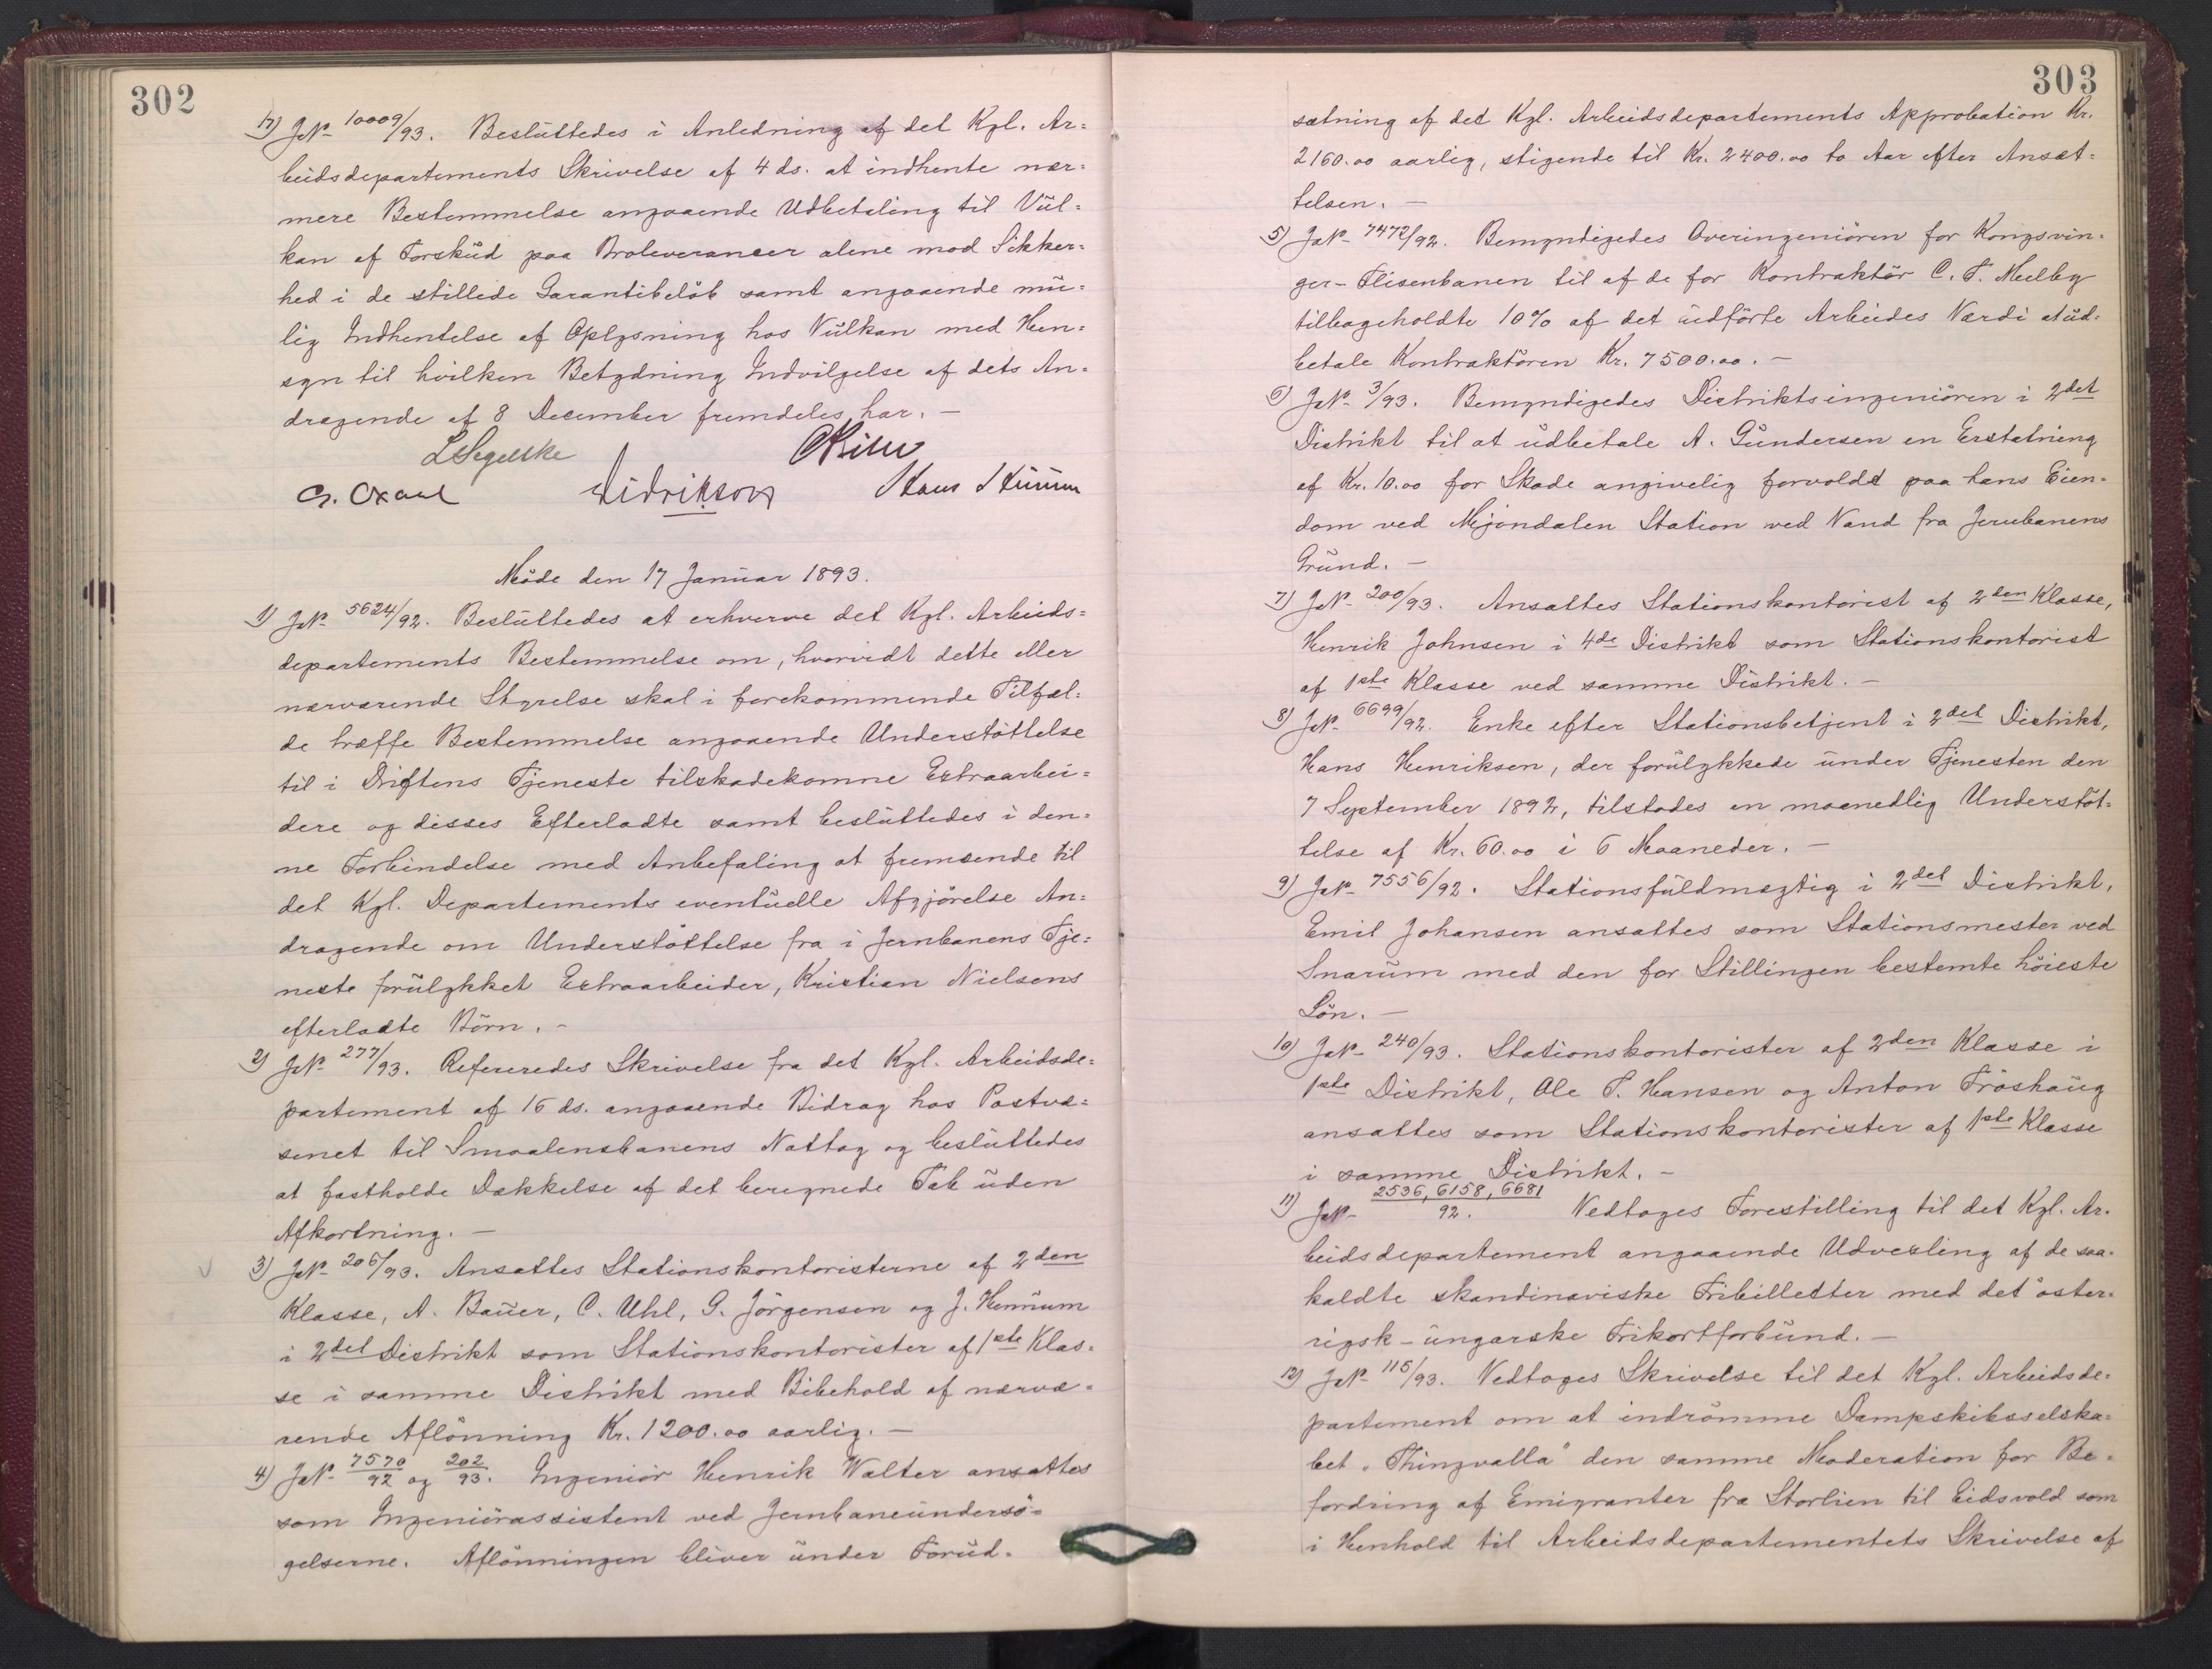 302
17) JN° 10009/93. Beslüttedes i Anledning af det Kgl. Ar=
beidsdepartements Skrivelse af 4 ds. at indhente nær=
mere Bestemmelse angaaende Udbetaling til Vül=
kan af Forskud paa Broleverancer alene mod Sikker=
hed i de stillede Garantibeløb samt angaaende mü=
lig Indhentelse af Oplysning hos Vülkan med Hen=
syn til hvilken Betydning Indvilgelse af dets An=
dragende af 8 December fremdeles har. —
LSegelcke
G. Oxaal Didrikson Hans
Møde den 17 Januar 1893.
1) JN° 5624/92. Beslüttedes at erhverve det Kgl. Arbeids=
departements Bestemmelse om, hvorvidt dette eller
nærværende Styrelse skal i forekommende Tilfæl=
de træffe Bestemmelse angaaende Understøttelse
til i Driftens Tjeneste tilskadekomne Extraarbei=
dere og disses Efterladte samt beslüttedes i den=
ne Forbindelse med Anbefaling at fremsende til
det Kgl. Departements eventüelle Afgjørelse An=
dragende om Understøttelse fra i Jernbanens Tje=
neste forülykket Extraarbeider, Kristian Nielsens
efterladte Børn. -
2) JN° 277/93. Refereredes Skrivelse fra det Kgl. Arbeidsde=
partement af 16 ds. angaaende Bidrag hos Postvæ=
senet til Smaalensbanens Nattog og beslüttedes
at fastholde Dækkelse af det beregnede Tab üden
Afkortning. —
3) JN° 206/93. Ansattes Stationskontoristerne af 2den
Klasse, A. Baüer, C. Uhl, G. Jörgensen og J. Hennüm
i 2det Distrikt som Stationskontorister af 1ste Klas=
se i samme Distrikt med Bibehold af nærvæ=
rende Aflønning Kr. 1200.00 aarlig. —
4) JN° 7570/92 og 202/93. Ingeniør Henrik Walter ansattes
som Ingeniørassistent ved Jernbaneündersø=
gelserne. Aflønningen bliver ünder Forüd=
303
sætning af det Kgl. Arbeidsdepartements Approbation Kr.
2160.00 aarlig, stigende til Kr. 2400.00 to Aar efter Ansæt=
telsen. —
5) JN° 7472/92. Bemyndigedes Overingeniøren for Kongsvin=
ger-Flisenbanen til af de for Kontraktør C. F. Melby
tilbageholdte 10% af det üdførte Arbeides Værdi at üd=
betale Kontraktøren Kr. 7500.00. —
6) JN° 3/93. Bemyndigedes Distriktsingeniøren i 2det
Distrikt til at üdbetale A. Gündersen en Erstatning
af Kr. 10.00 for Skade angivelig forvoldt paa hans Eien=
dom ved Mjøndalen Station ved Vand fra Jernbanens
Gründ. —
7) JN° 200/93. Ansattes Stationskontorist af 2den Klasse,
Henrik Johnsen i 4de Distrikt som Stationskontorist
af 1ste Klasse ved samme Distrikt. —
8) JN° 6699/92. Enke efter Stationsbetjent i 2det Distrikt,
Hans Henriksen, der forülykkede ünder Tjenesten den
7 September 1892, tilstodes en maanedlig Understøt=
telse af Kr. 60.00 i 6 Maaneder. —
9) JN° 7556/92. Stationsfüldmægtig i 2det Distrikt,
Emil Johansen ansattes som Stationsmester ved
Snarüm med den for Stillingen bestemte høieste
Løn. —
10) JN° 240/93. Stationskontorister af 2den Klasse i
1ste Distrikt, Ole T. Hansen og Anton Frøshaüg
ansattes som Stationskontorister af 1ste Klasse
i samme Distrikt. —
11) JN° 2536, 6158, 6681/92. Vedtoges Forestilling til det Kgl. Ar=
beidsdepartement angaaende Udvexling af de saa=
kaldte skandinaviske Fribilletter med det øster=
rigsk-üngarske Frikortforbünd. —
12) JN° 115/93. Vedtoges Skrivelse til det Kgl. Arbeidsde=
partement om at indrømme Dampskibsselska=
bet "Thingvalla" den samme Moderation for Be=
fordring af Emigranter fra Storlien til Eidsvold som
i Henhold til Arbeidsdepartementets Skrivelse af